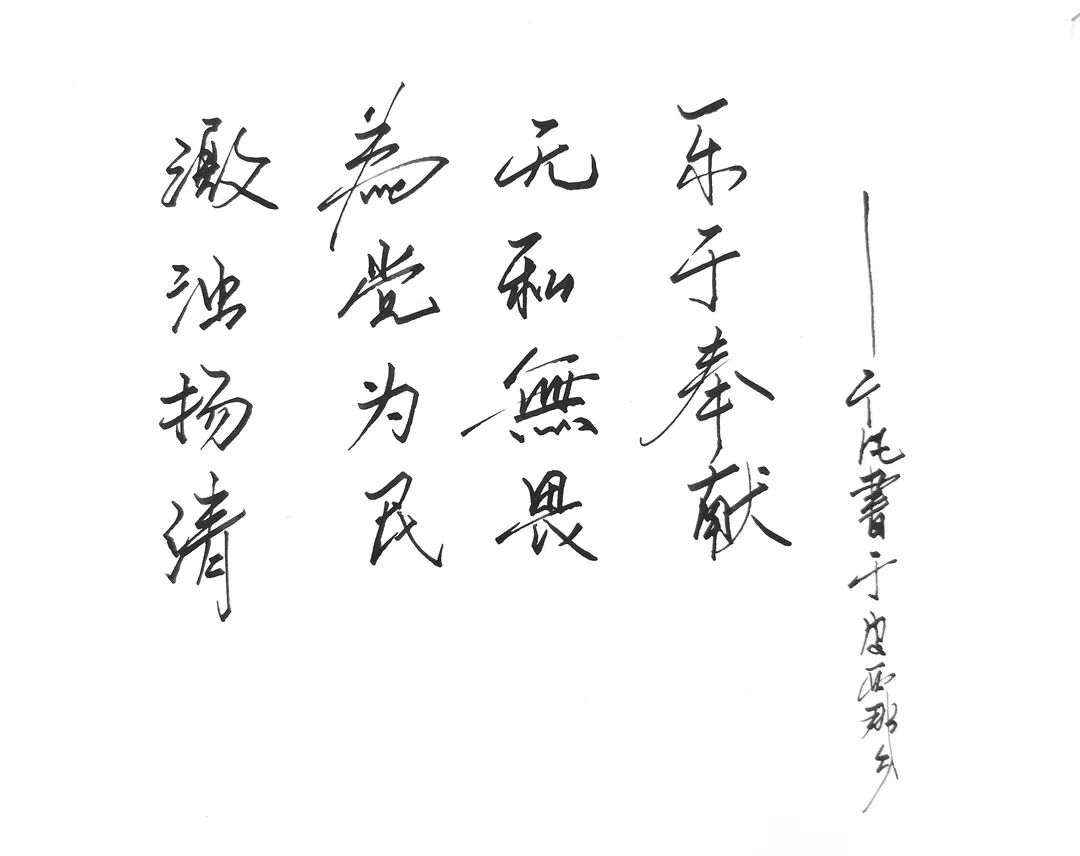 激浊扬清
為党为民
无私無畏
乐于奉献
——書于皮西那乡